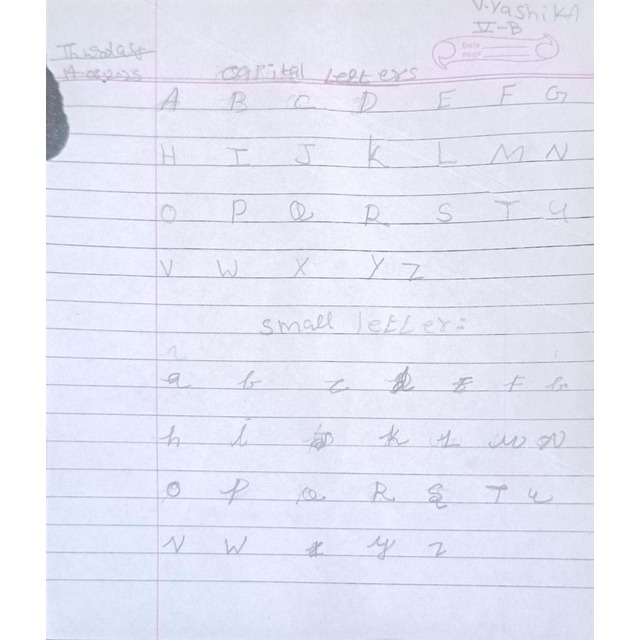 V.Yashika
V-B
Date
Page
Thursday
19.06.2025
capital letters
A B C D E F G
H I J K L M N
O P Q R S T U
V W X Y Z
small letter:
a b c d e f G
h i j k L m N
O p Q R S T u
V W x y z